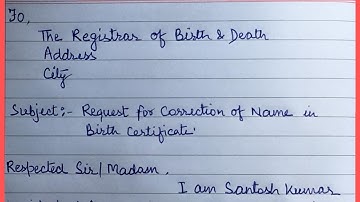 To,
The Registrar of Birth & Death
Address
City
Subject:- Request for Correction of Name in
Birth Certificate.
Respected Sir/Madam,
I am Santosh Kumar